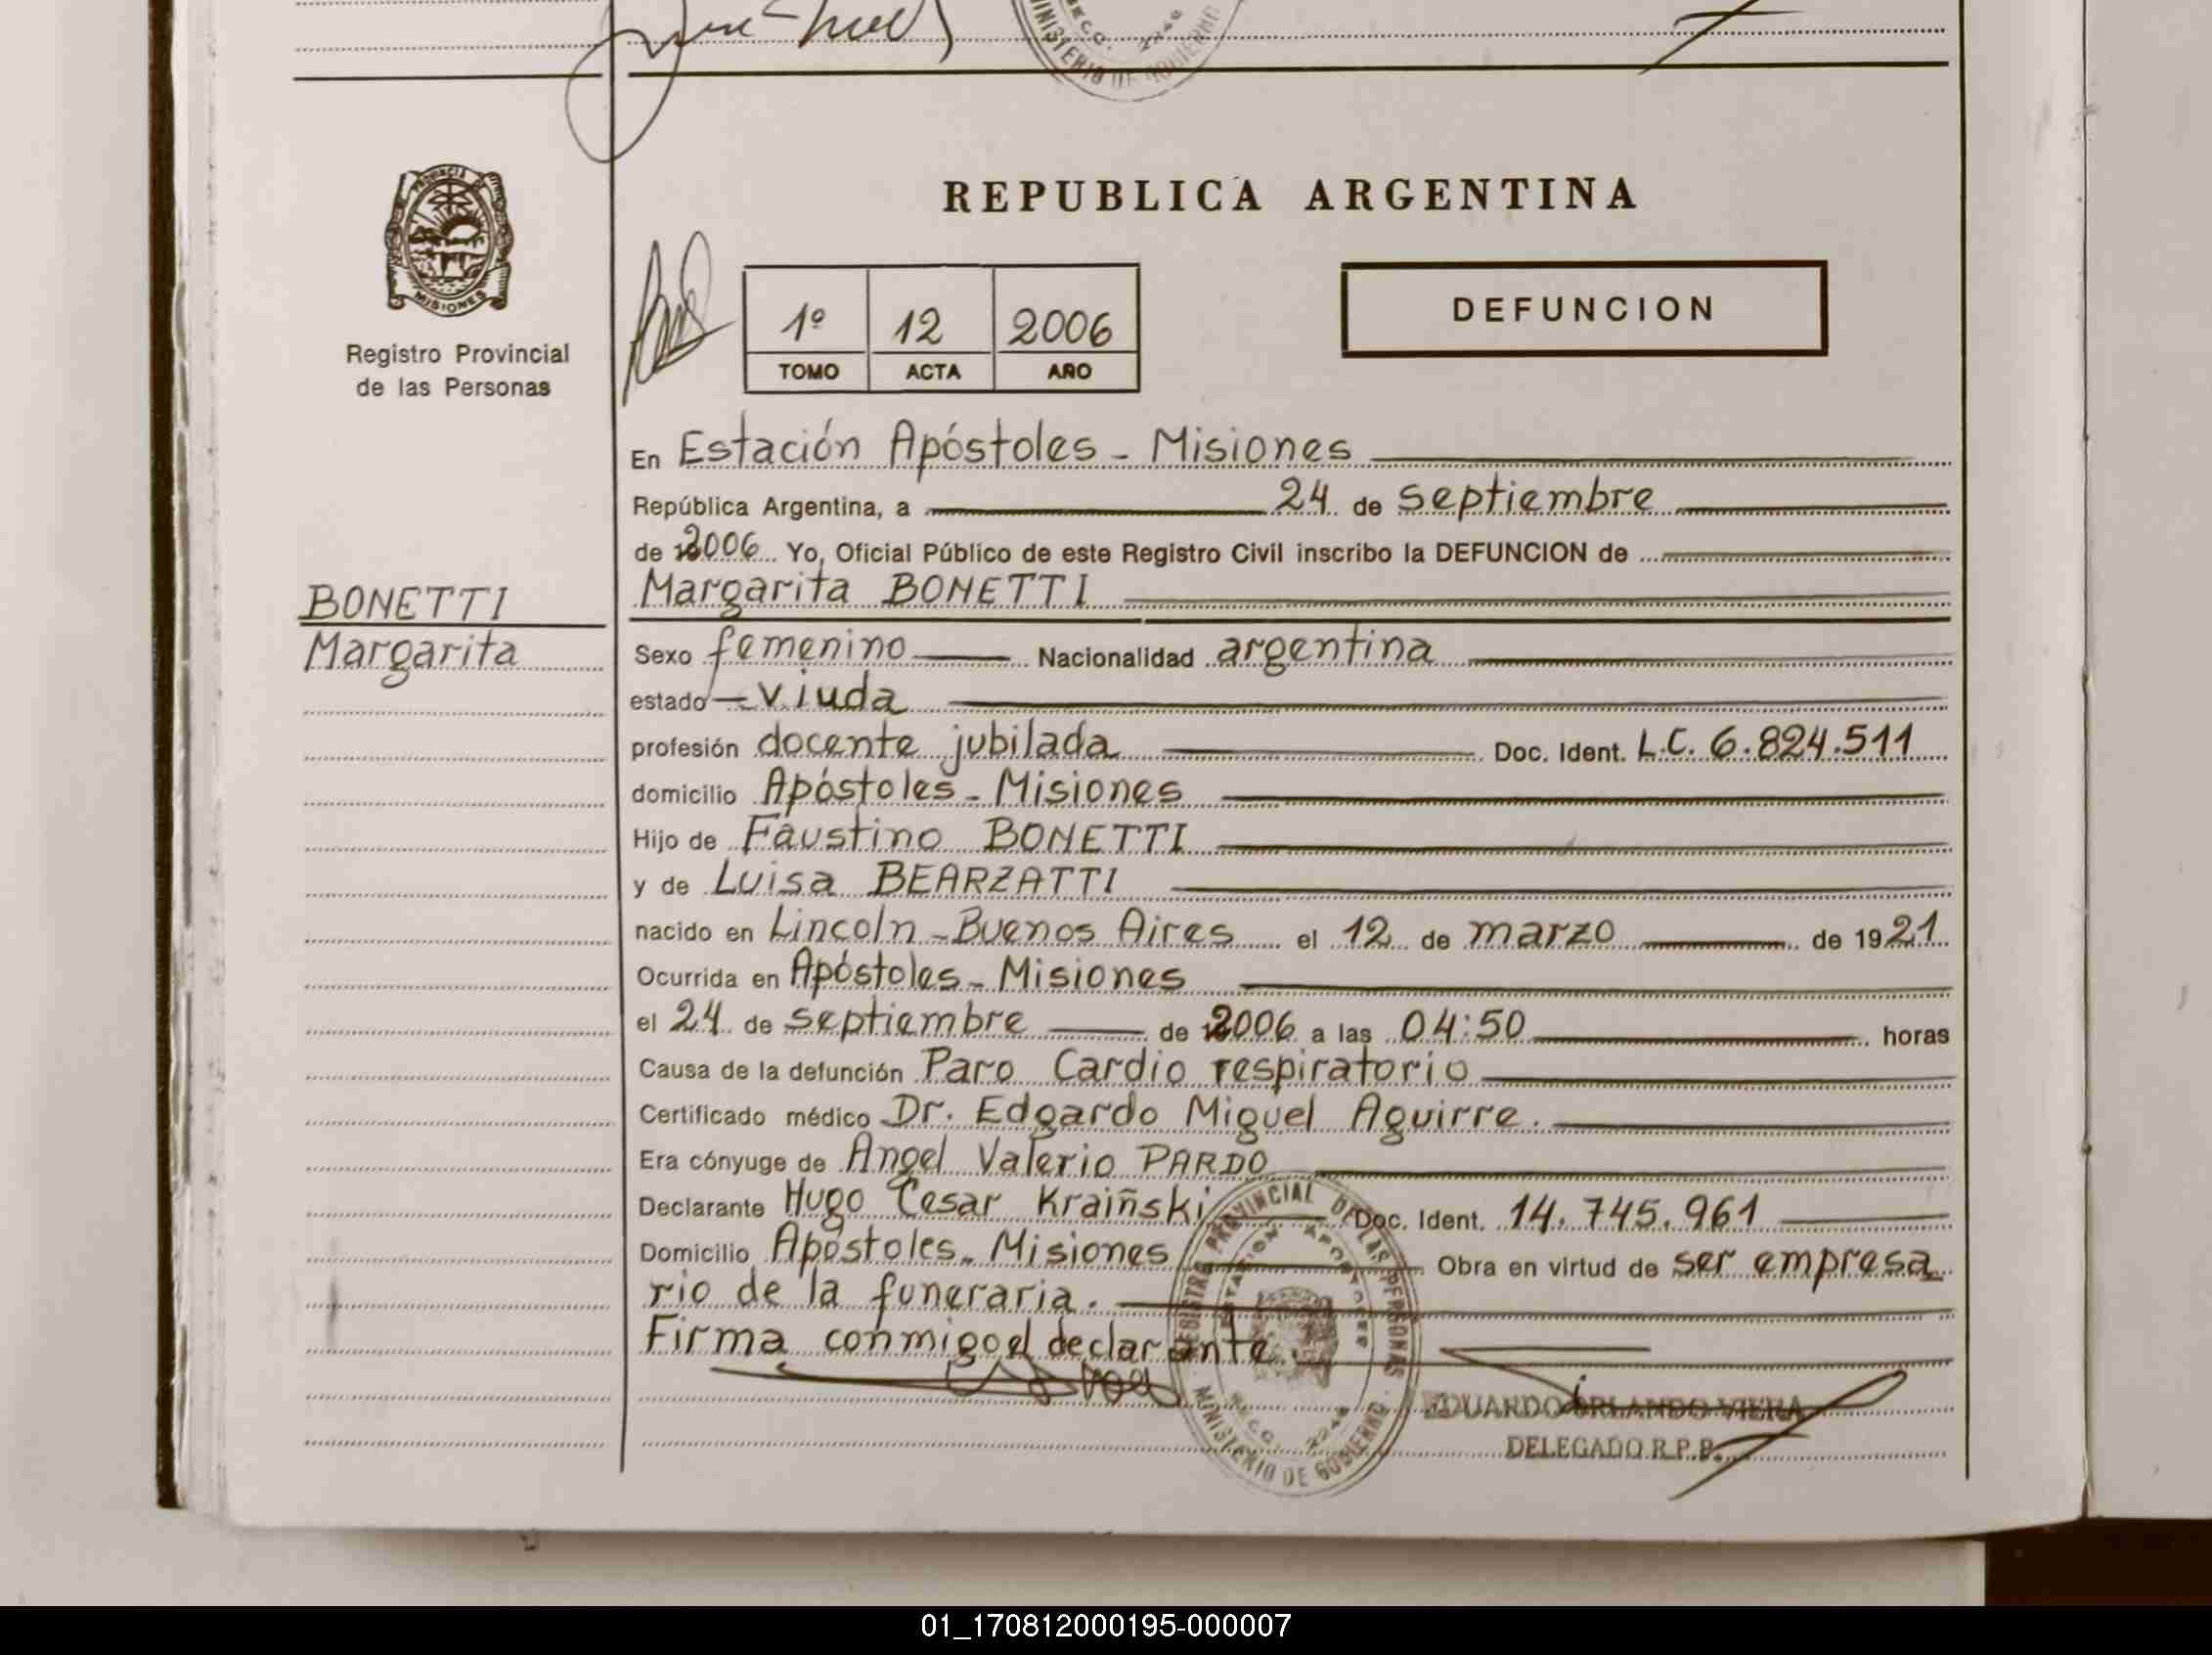 MINISTERIO DE GOBIERNO
SECO. 2246
PROVINCIA DE
MISIONES
Registro Provincial
de las Personas
REPUBLICA ARGENTINA
1º 12 2006
TOMO ACTA AÑO
DEFUNCION
En Estación Apóstoles - Misiones
República Argentina, a 24 de septiembre
de 2006 Yo, Oficial Público de este Registro Civil inscribo la DEFUNCION de
BONETTI
Margarita
Margarita BONETTI
Sexo femenino Nacionalidad argentina
estado viuda
profesión docente jubilada Doc. Ident. L.C. 6.824.511
domicilio Apóstoles - Misiones
Hijo de Faustino BONETTI
y de Luisa BEARZATTI
nacido en Lincoln - Buenos Aires el 12 de marzo de 1921
Ocurrida en Apóstoles - Misiones
el 24 de septiembre de 2006 a las 04:50 horas
Causa de la defunción Paro Cardio respiratorio
Certificado médico Dr. Edgardo Miguel Aguirre.
Era cónyuge de Angel Valerio PARDO
Declarante Hugo Cesar Kraiñski Doc. Ident. 14.745.961
Domicilio Apóstoles - Misiones Obra en virtud de ser empresa
rio de la funeraria.
Firma conmigo el declarante.
REGISTRO PROVINCIAL DE LAS PERSONAS
ESTACION APOSTOLES
SECO. 2246
MINISTERIO DE GOBIERNO
EDUARDO ORLANDO VIERA
DELEGADO R.P.P.
01_170812000195-000007